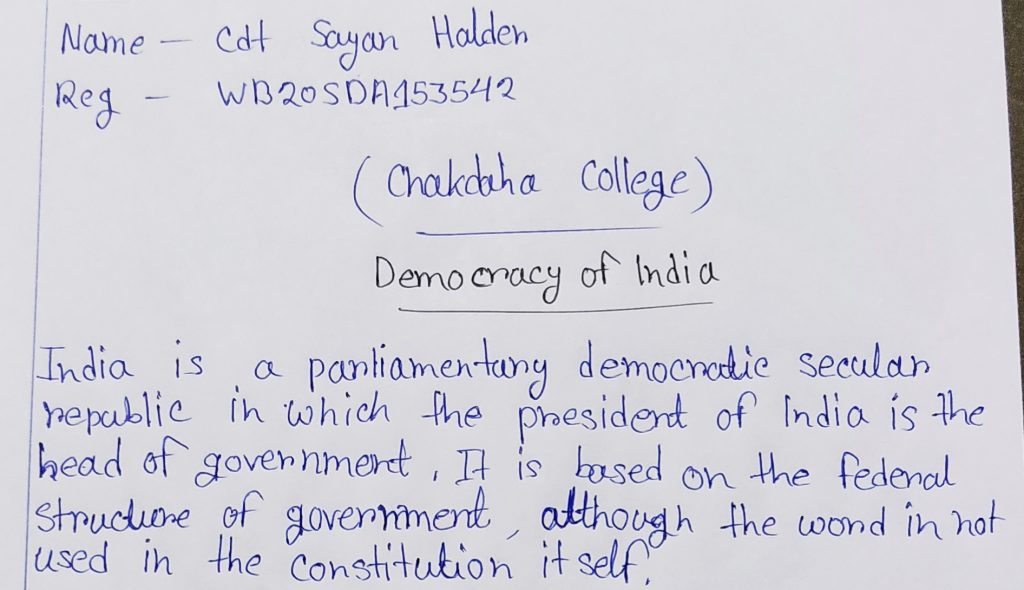 Name – Cdt Sayan Halder
Reg – WB20SDA153542
(Chakdaha College)
Democracy of India
India is a parliamentary democratic secular
republic in which the president of India is the
head of government. It is based on the federal
structure of government, although the word in not
used in the constitution itself.